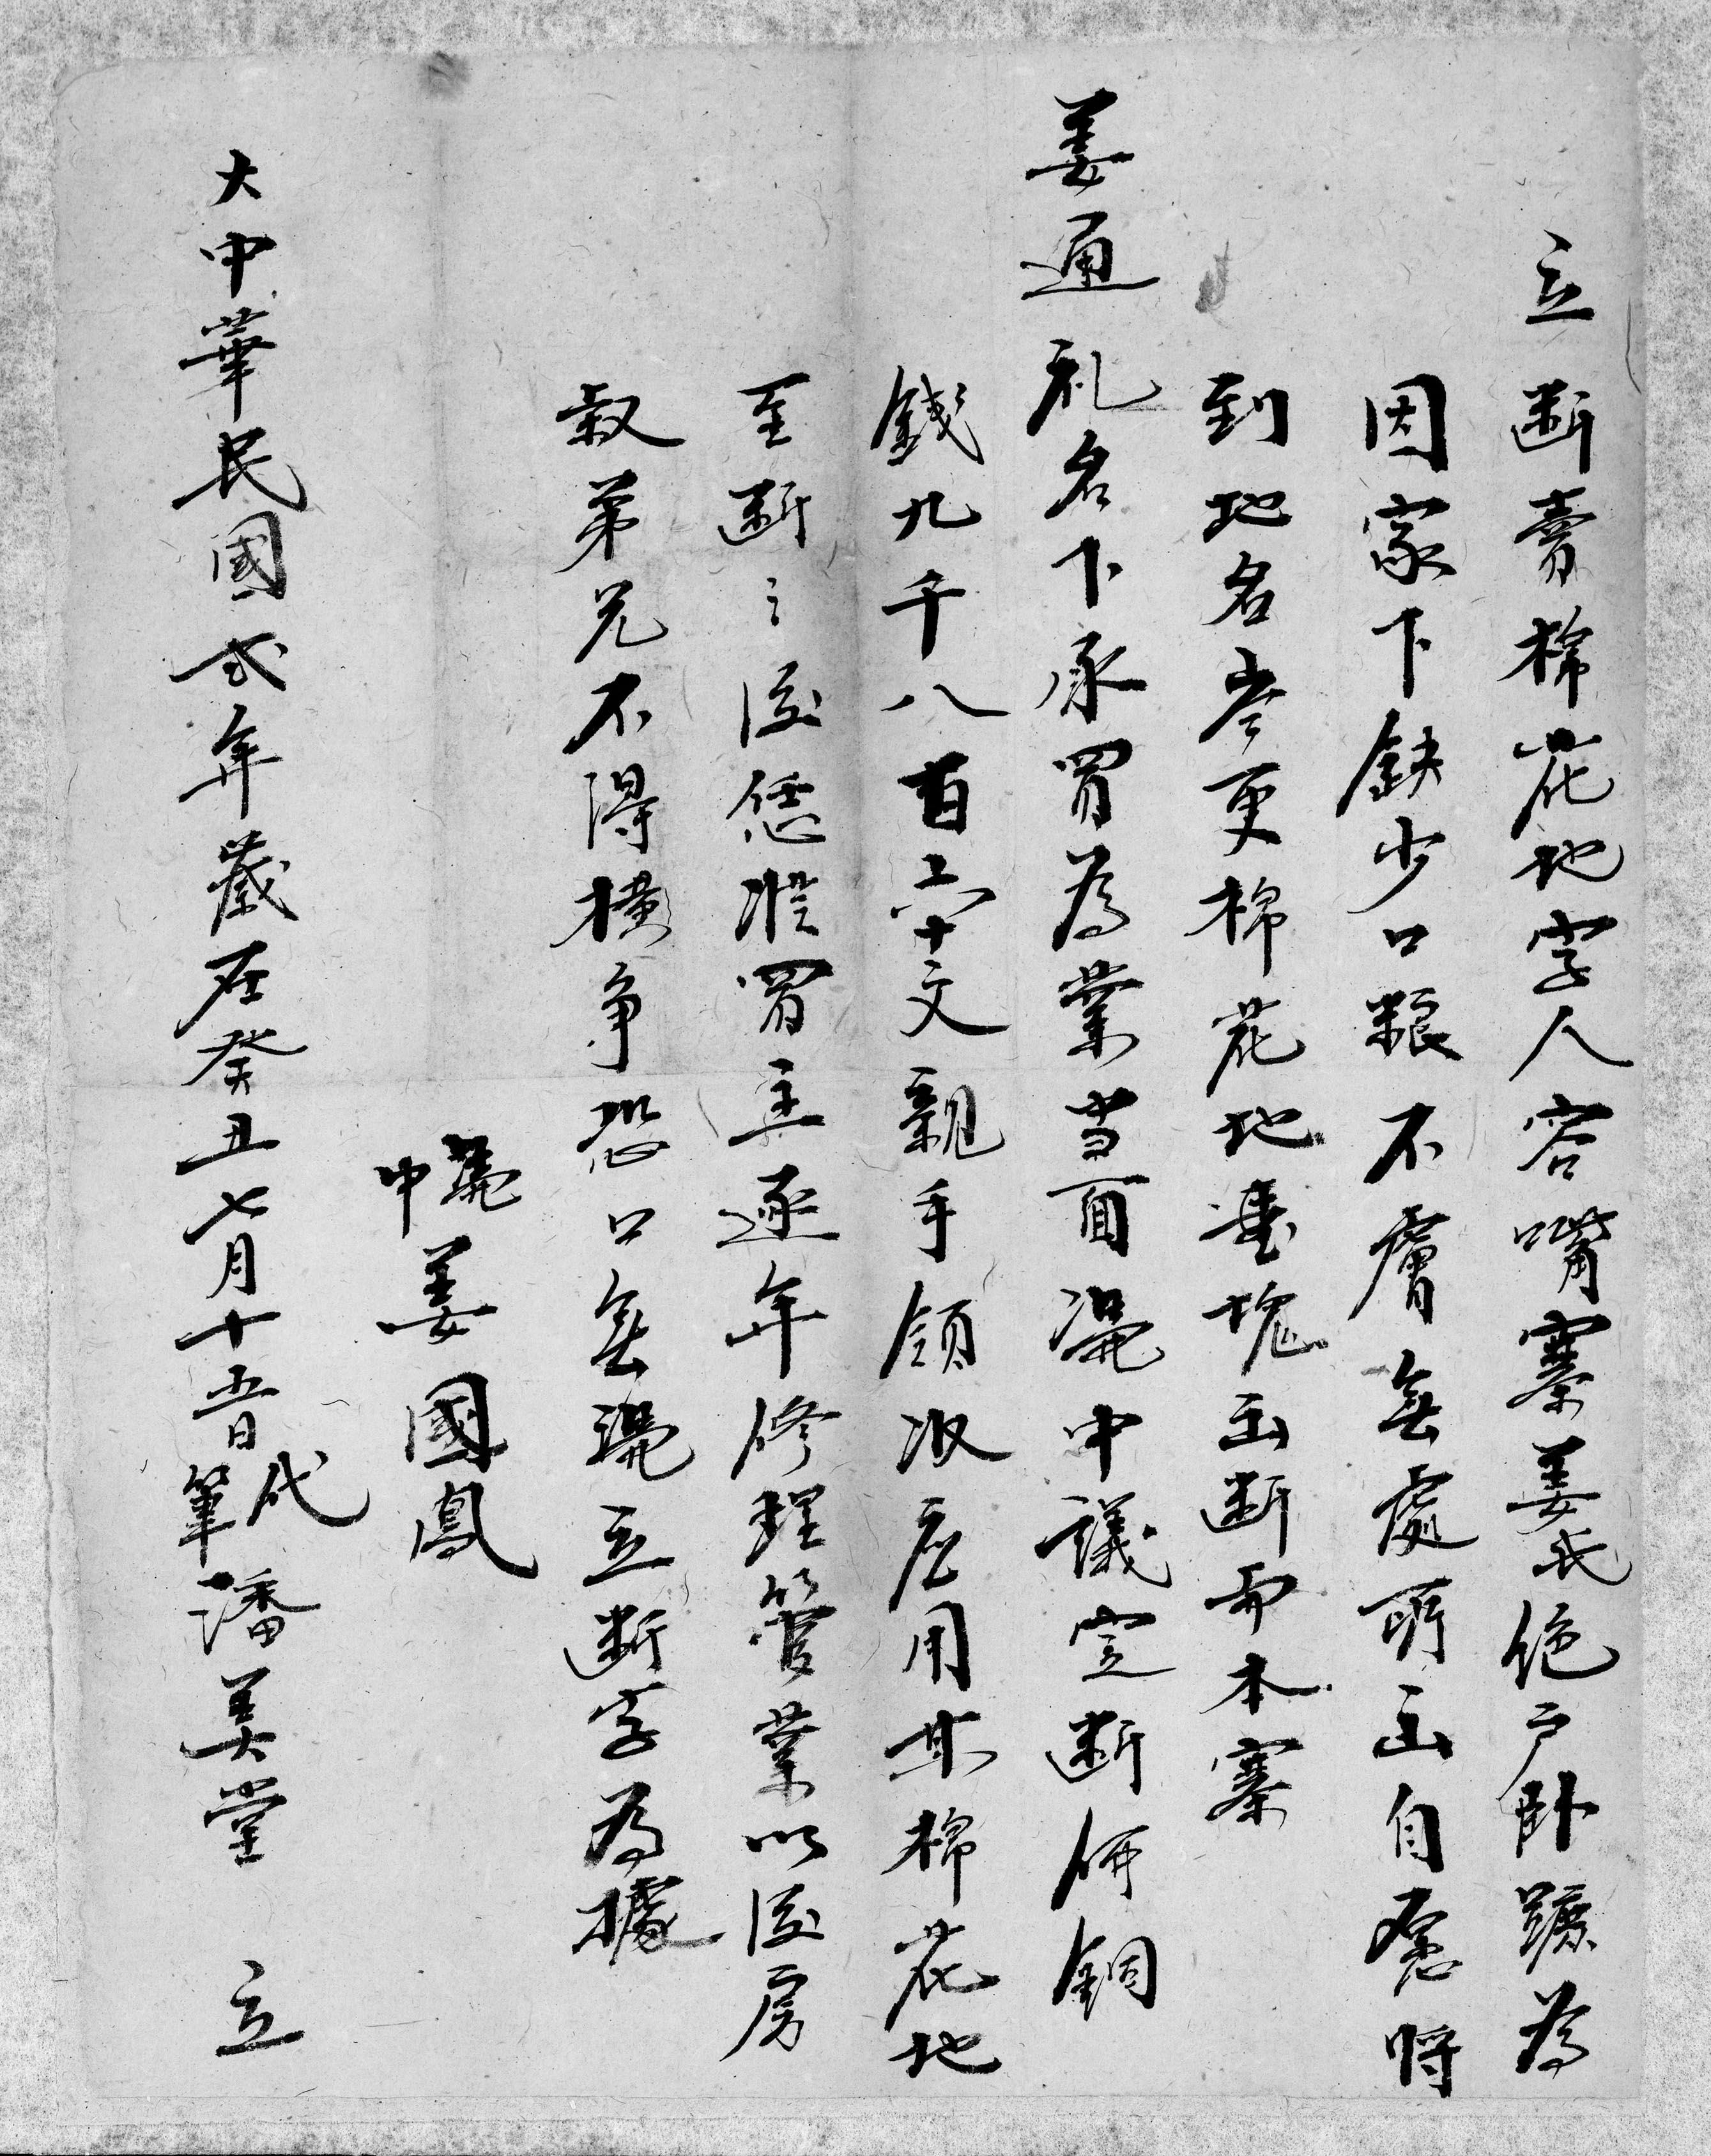 立断賣棉花地字人容嘴寨姜氏絶户卧蹠為
因家下缺少口粮不膚無處所出自愿將
到地名岑更棉花地壹塊出断與本寨
姜通礼名下承買為業当面憑中議定断價銅
錢九千八百六十文親手領收应用其棉花地
至断之後恁憑買主逐年修理管業以後房
叔弟兄不得横争恐口無憑立断字為據
憑中姜國鳳
大中華民國弍年歲在癸丑七月十五日代筆潘美堂 立